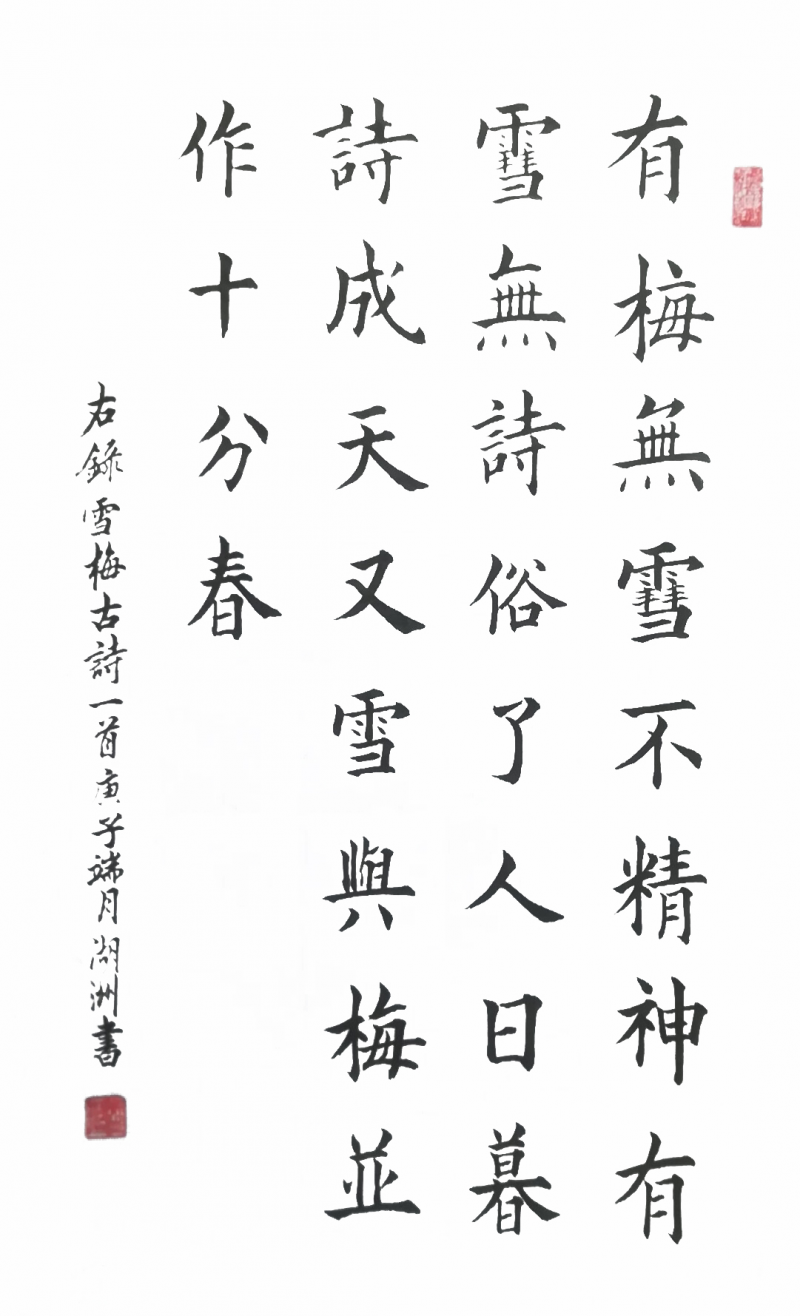 有梅無雪不精神有
雪無詩俗了人日暮
詩成天又雪與梅並
作十分春
右錄雪梅古詩一首庚子端月湖洲書